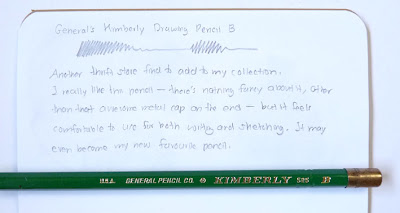 General's Kimberly Drawing Pencil B
Another thrift store find to add to my collection.
I really like this pencil — there's nothing fancy about it, other
than that awesome metal cap on the end — but it feels
comfortable to use for both writing and sketching. It may
even become my new favourite pencil.
U.S.A. GENERAL PENCIL CO. KIMBERLY 525 B